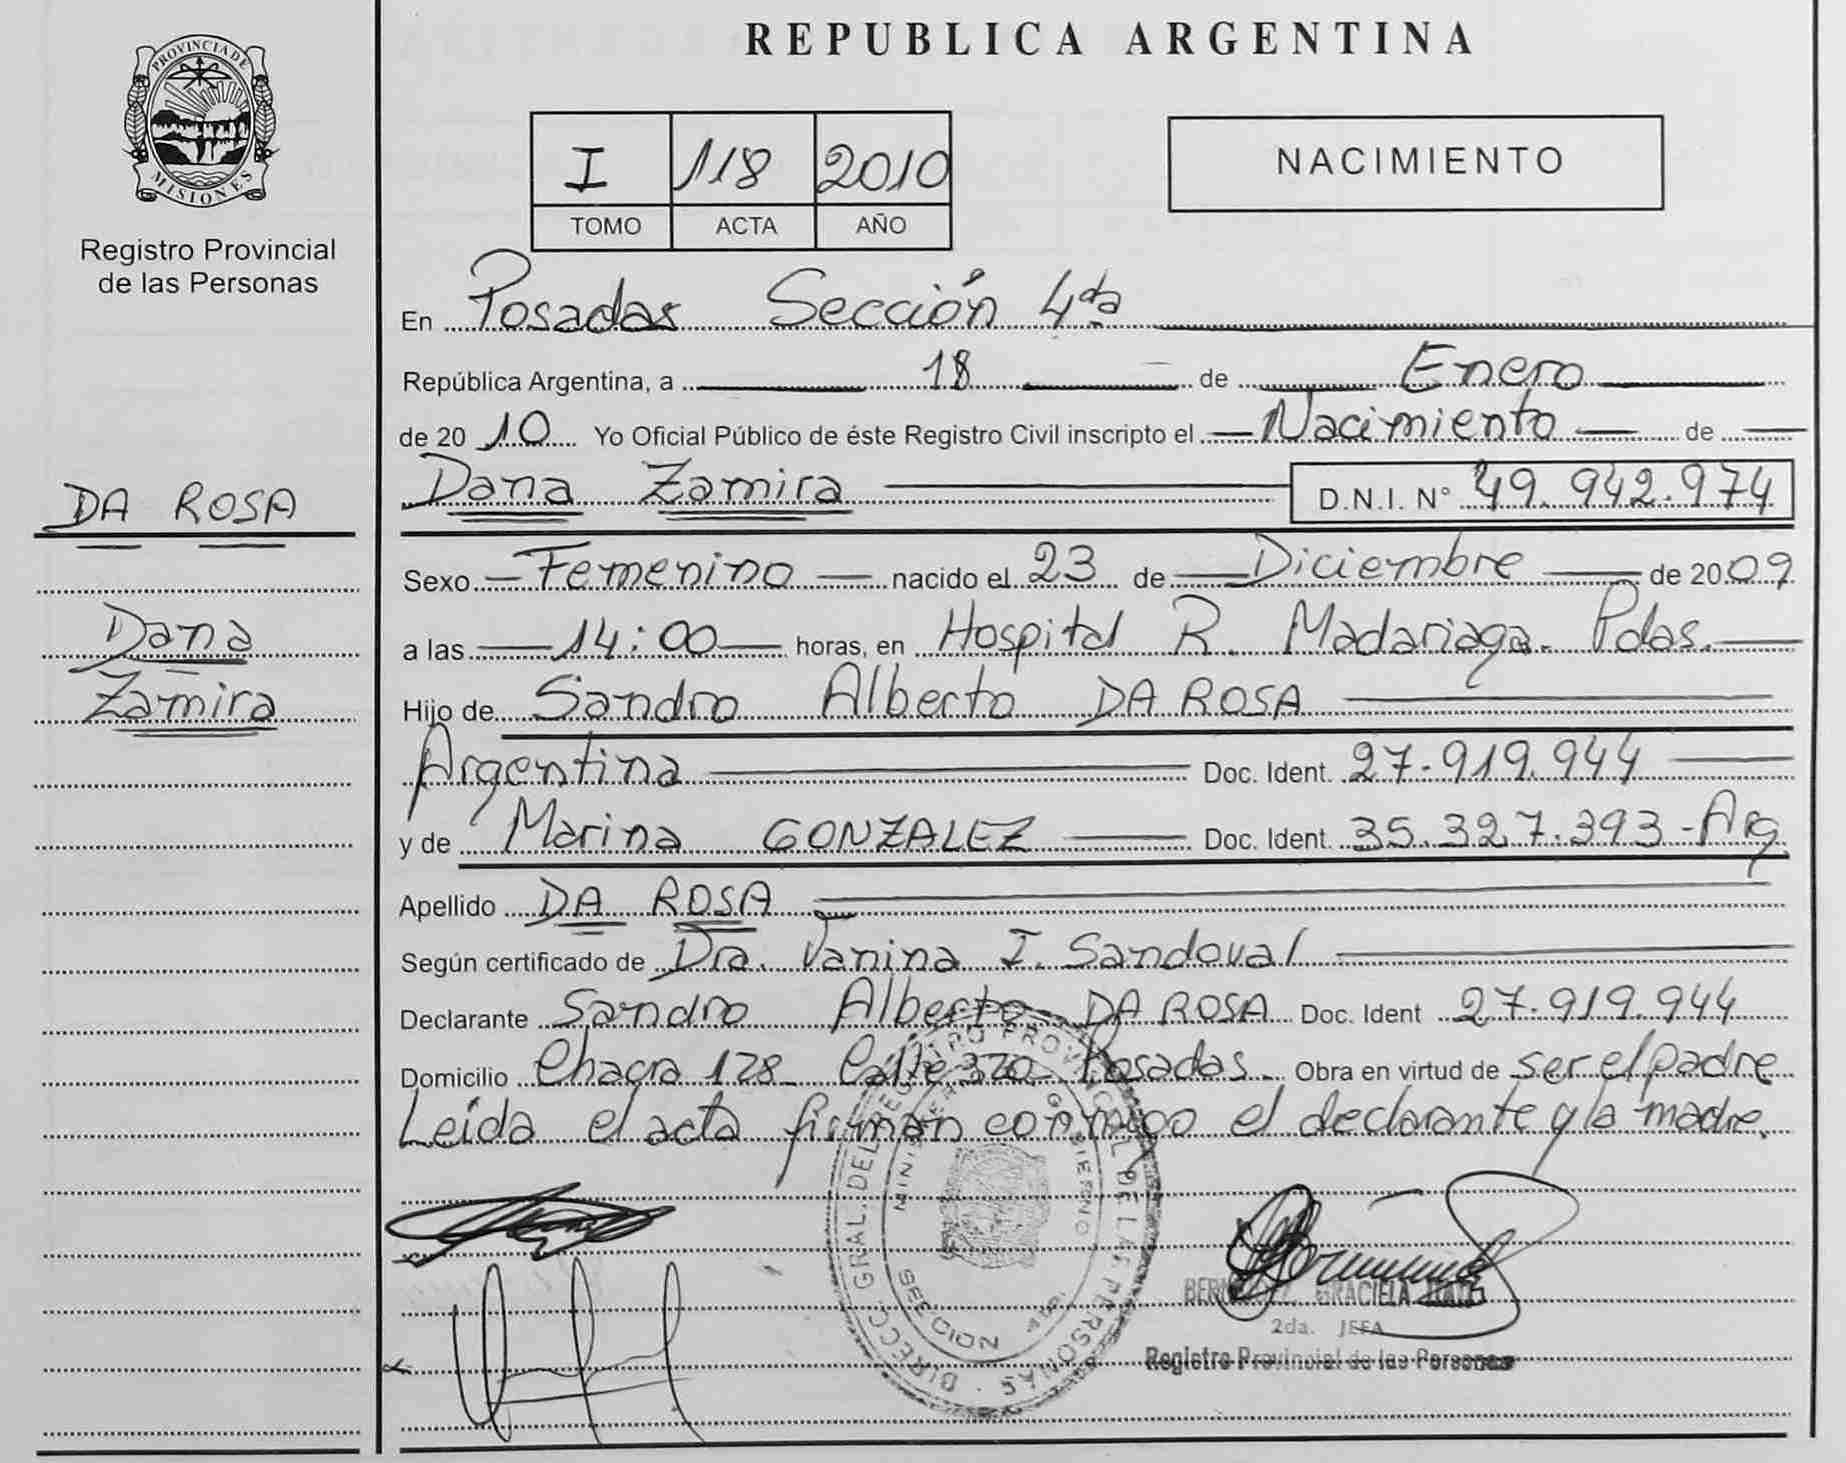 REPUBLICA ARGENTINA
PROVINCIA DE
MISIONES
Registro Provincial
de las Personas
I 118 2010
TOMO ACTA AÑO
NACIMIENTO
En Posadas Sección 4da
República Argentina, a 18 de Enero
de 20 10 Yo Oficial Público de éste Registro Civil inscripto el Nacimiento de
Dana Zamira D.N.I. N° 49.942.974
DA ROSA
Dana
Zamira
Sexo Femenino nacido el 23 de Diciembre de 20 09
a las 14:00 horas, en Hospital R. Madariaga- Pdas.
Hijo de Sandro Alberto DA ROSA
Argentina Doc. Ident. 27.919.944
y de Marina GONZALEZ Doc. Ident. 35.327.393-Arg
Apellido DA ROSA
Según certificado de Dra. Vanina I. Sandoval
Declarante Sandro Alberto DA ROSA Doc. Ident 27.919.944
Domicilio Chacra 128- Calle 320- Posadas- Obra en virtud de ser el padre
Leída el acta firman conmigo el declarante y la madre.
DIRECC. GRAL. DEL REGISTRO PROVINCIAL DE LAS PERSONAS
MINISTERIO GOBIERNO
SECCION 4ta
GRACIELA
2da. JEFA
Registro Provincial de las Personas